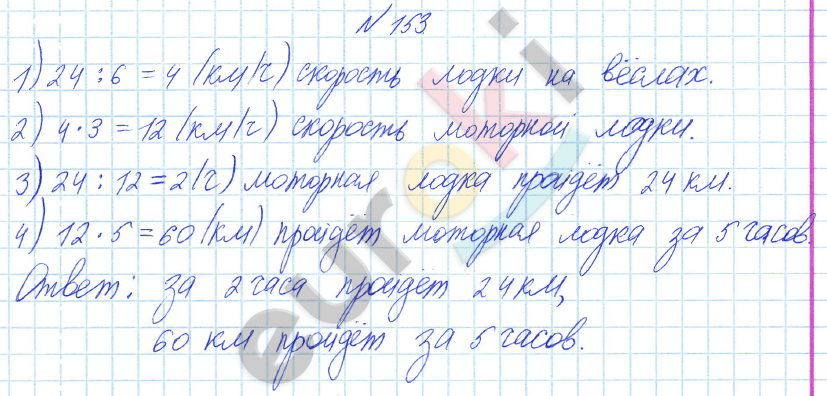 № 153
1) 24 : 6 = 4 (км/ч) скорость лодки на вёслах.
2) 4 · 3 = 12 (км/ч) скорость моторной лодки.
3) 24 : 12 = 2 (ч) моторная лодка пройдёт 24 км.
4) 12 · 5 = 60 (км) пройдёт моторная лодка за 5 часов.
Ответ: за 2 часа пройдёт 24 км,
60 км пройдёт за 5 часов.
euroki